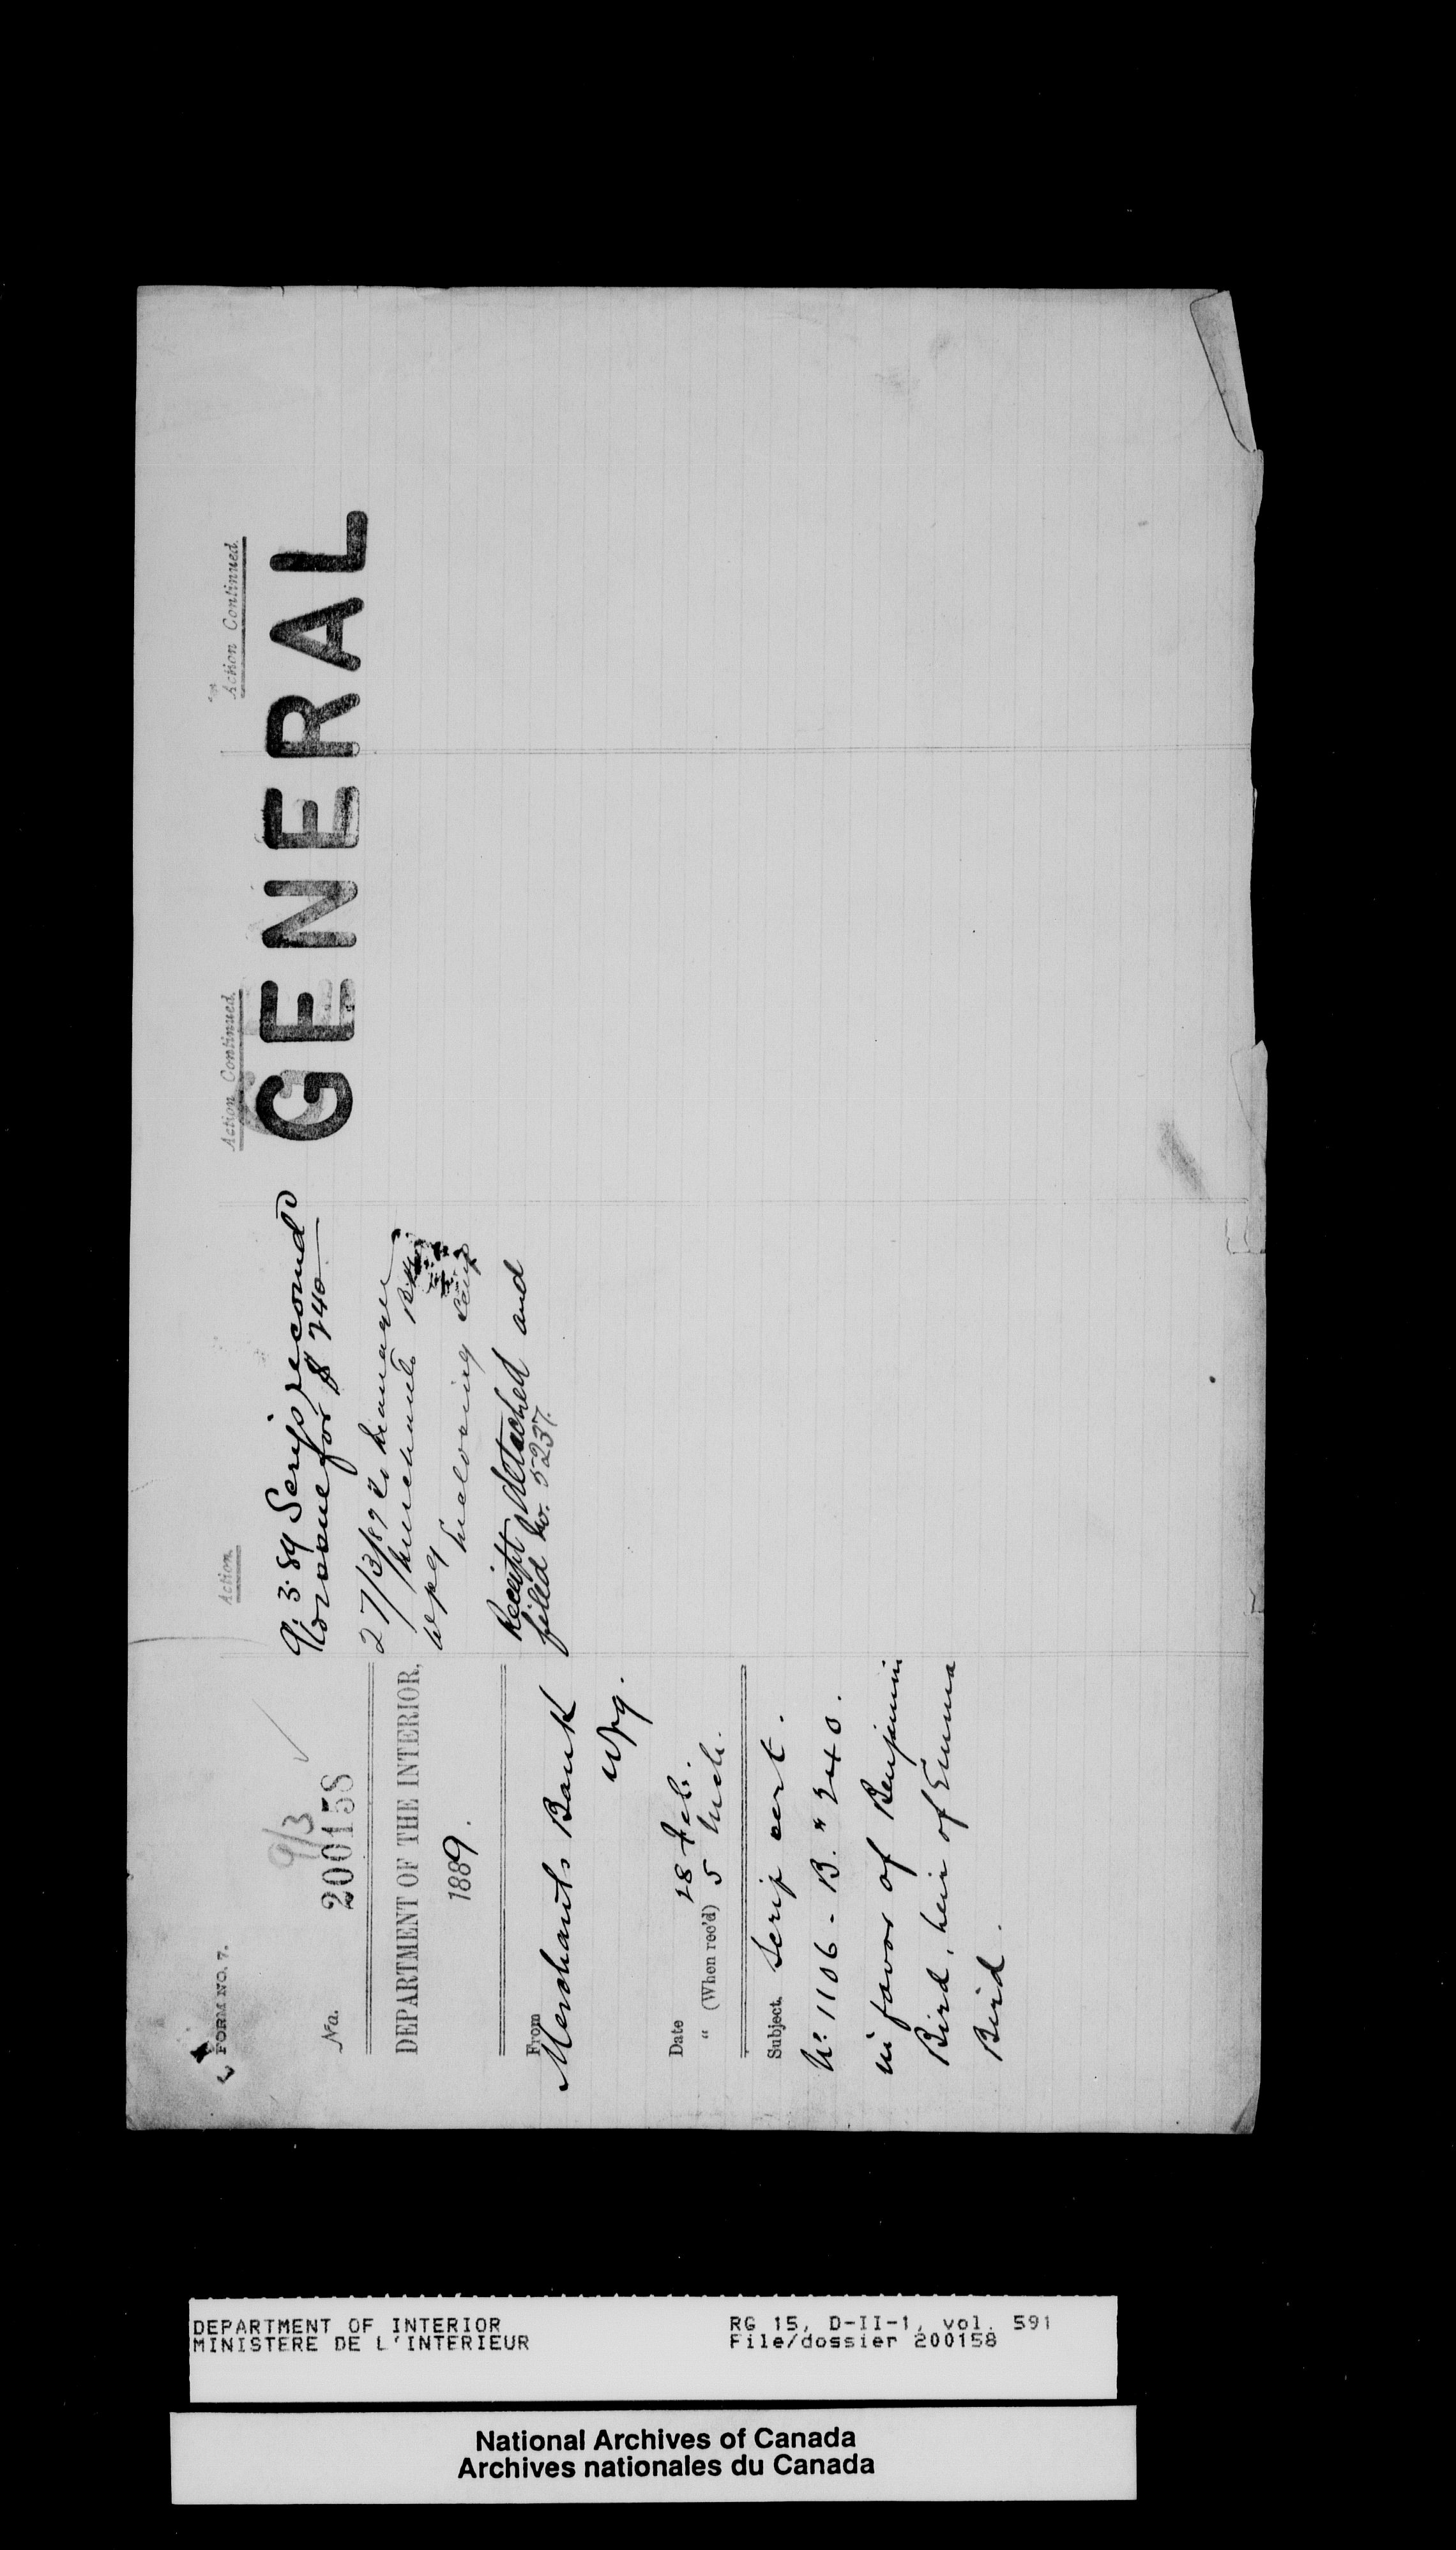 FORM NO. 7.
9/3
No. 200158
DEPARTMENT OF THE INTERIOR,
1889.
From
Merchants Bank
Wpg.
Date 28 Feb.
" (When rec'd) 5 Mch.
Subject. Scrip cert.
No. 1106 - B. " 240.
in favor of Benjamin
Bird, heir of Emma
Bird.
Action.
9.3.89 Scrip recomd
to issue for $240
27/3/89 To Manager
Merchants Bk
Wpg
Enclosing Scrip
Receipt detached and
filed No. 5237.
Action Continued.
GENERAL
Action Continued.
DEPARTMENT OF INTERIOR
MINISTERE DE L'INTERIEUR
RG 15, D-II-1, vol. 591
File/dossier 200158
National Archives of Canada
Archives nationales du Canada